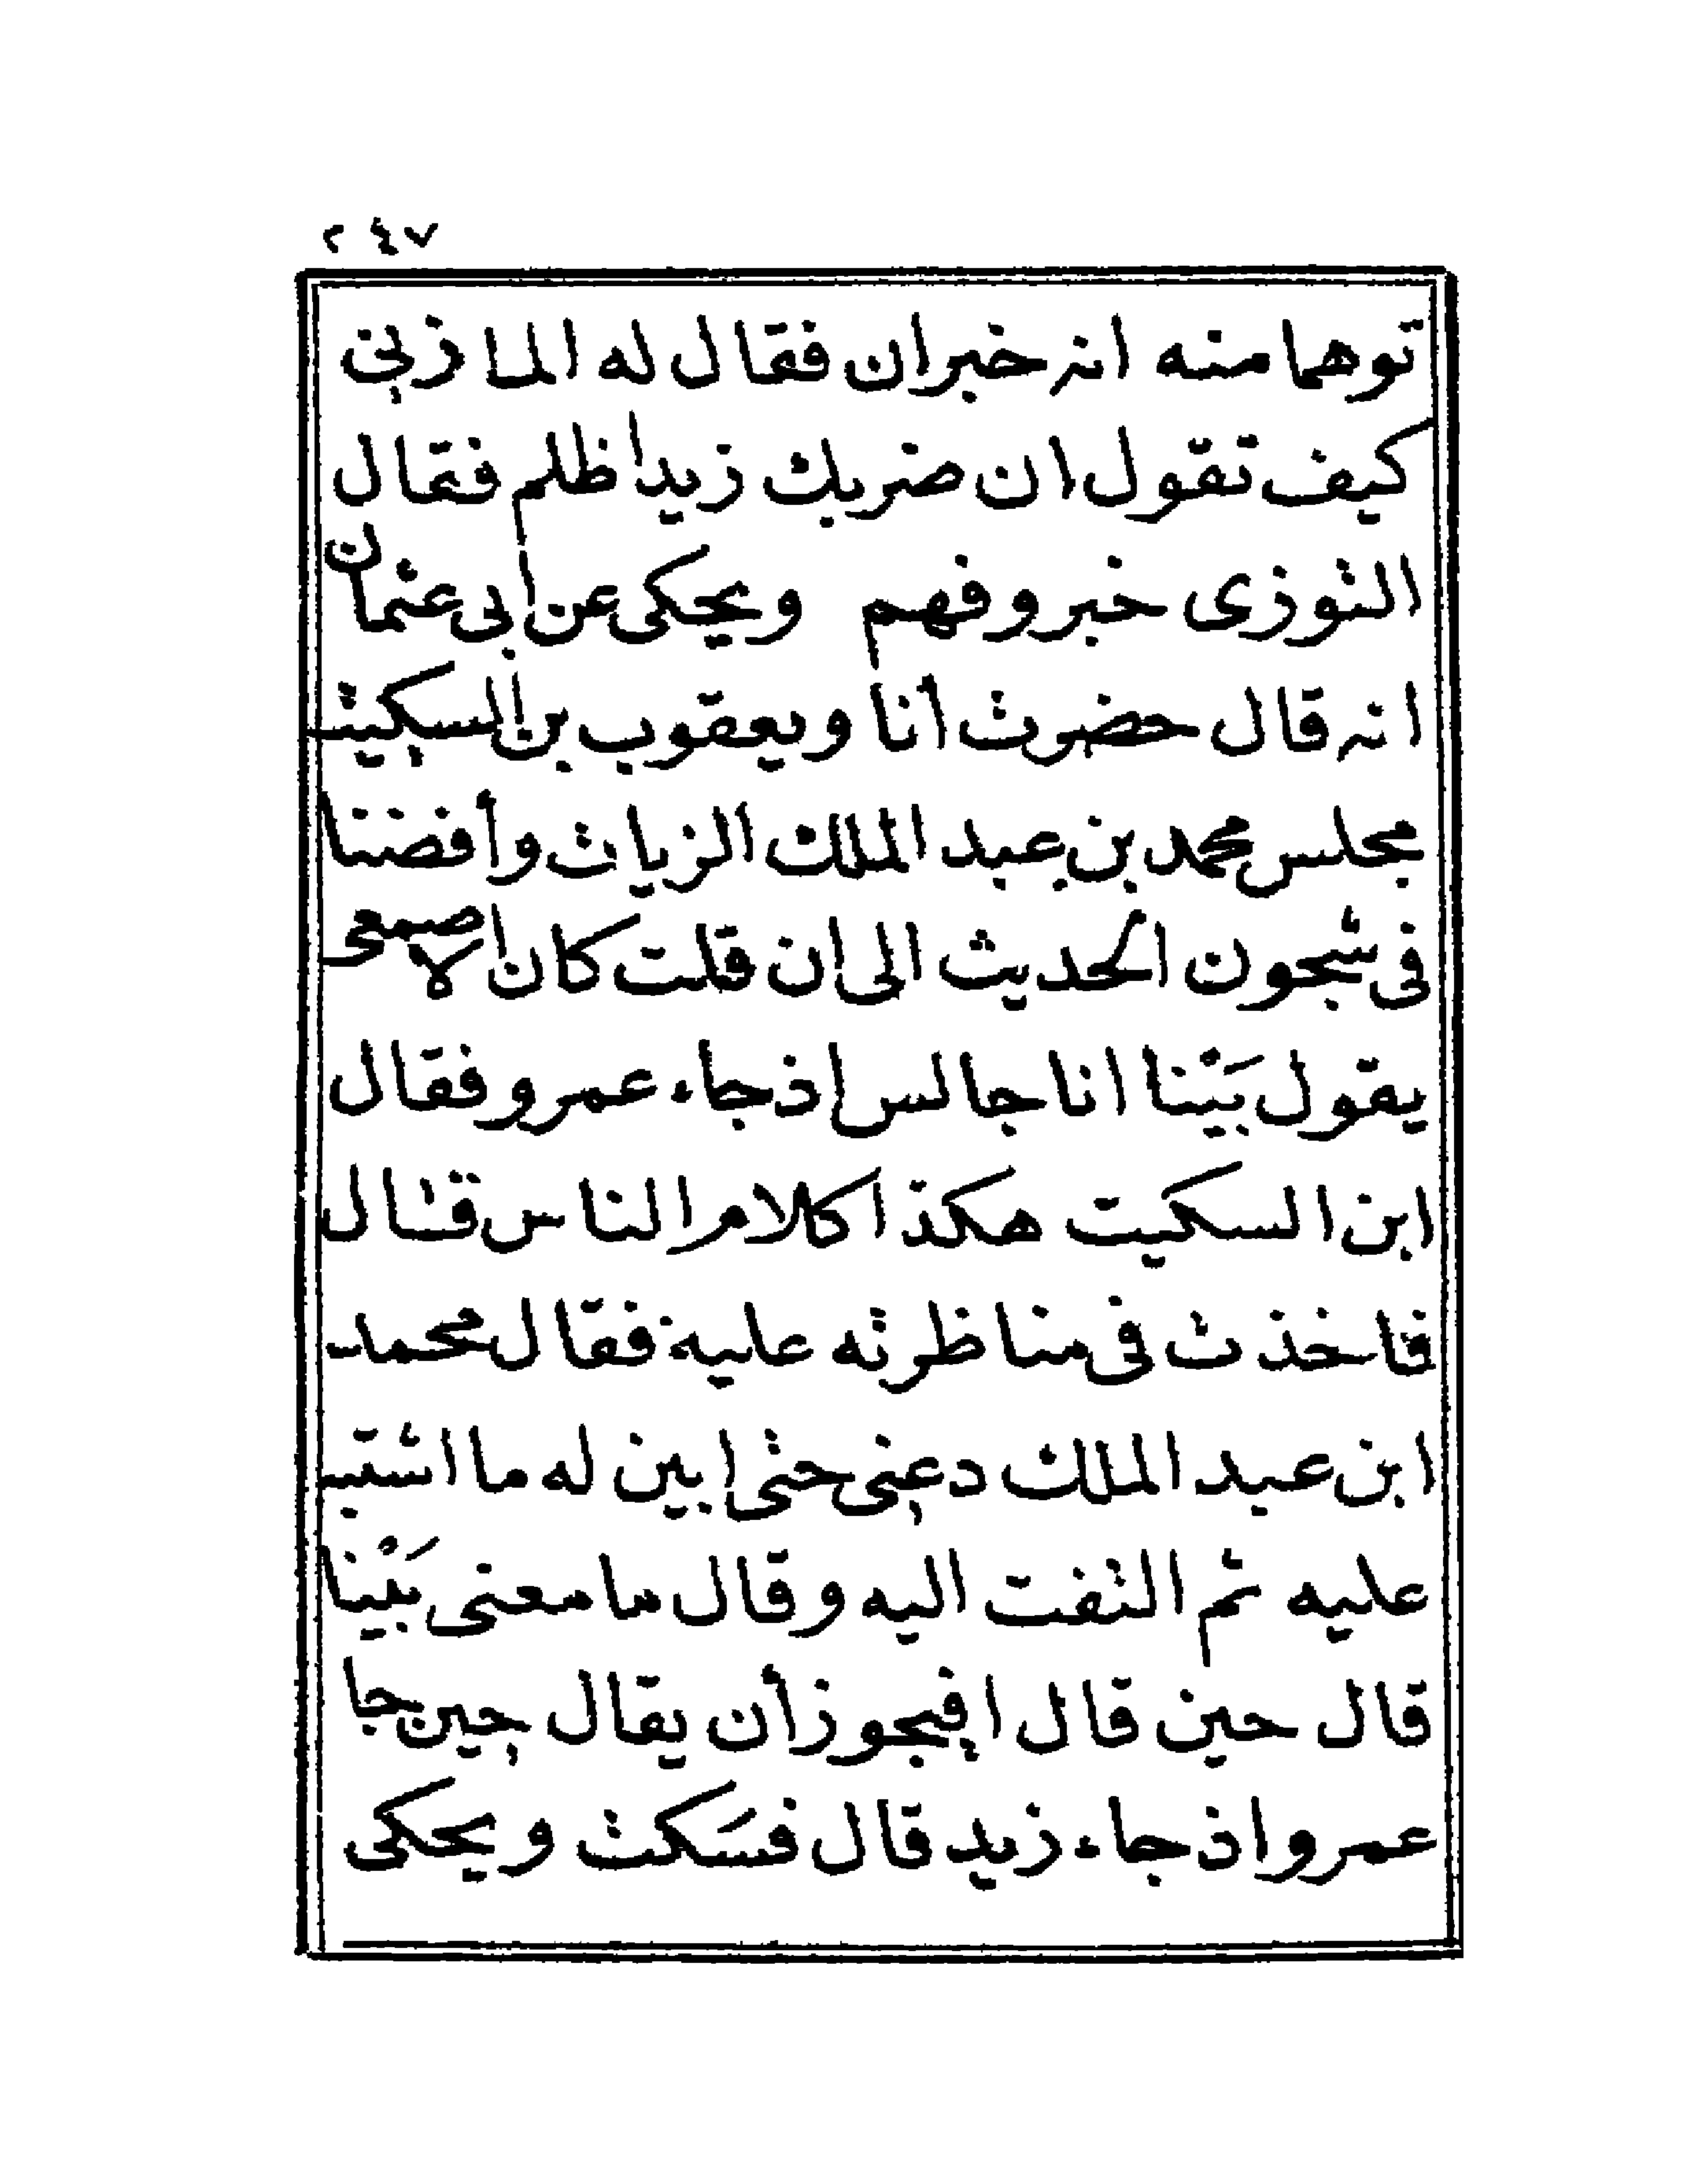 ٢٤٧
توهما منه انه خبر ان فقال له المازنى
كيف تقول ان ضربك زيدا ظلم فقال
التوزى خبر وفهم ويحكى عن ابى عثمان
انه قال حضرت أنا ويعقوب بن السكيت
مجلس محمد بن عبد الملك الزيات وأفضنا
فى شجون الحديث الى ان قلت كان الاصمعى
يقول بَيْنا انا جالس اذ جاء عمرو فقال
ابن السكيت هكذا كلام الناس قال
فاخذت فى مناظرته عليه فقال محمد
ابن عبد الملك دعنى حتى ابين له ما اشتبه
عليه ثم التفت اليه وقال ما معنى بَيْنا
قال حين قال افيجوز أن يقال حين جا
عمرو اذ جاء زيد قال فسَكت ويحكى